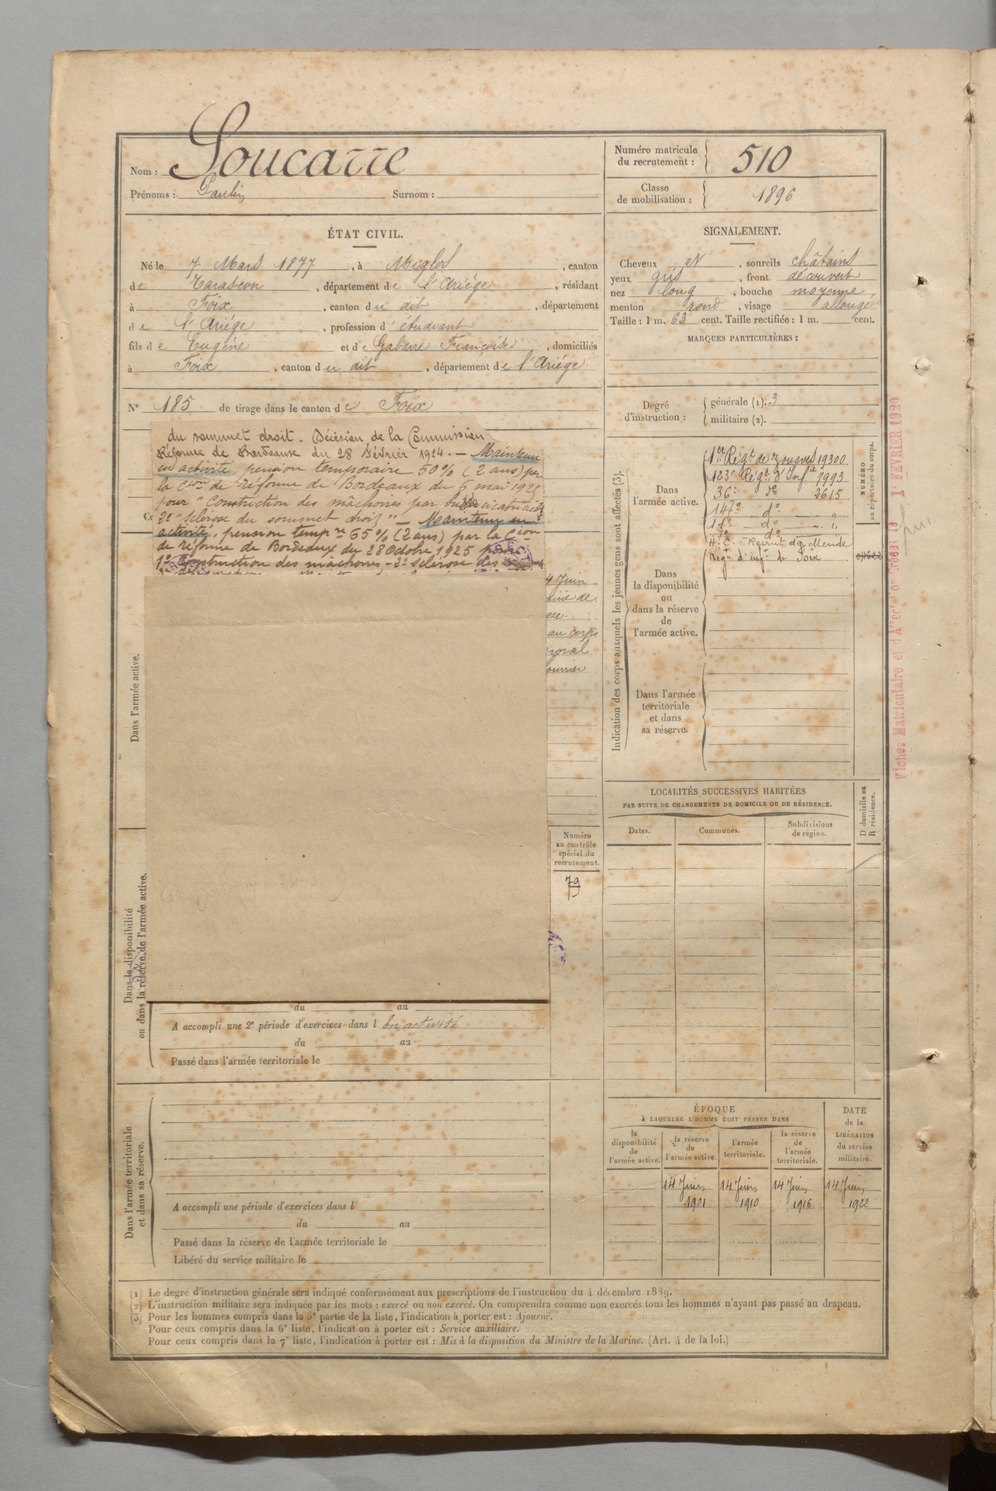 Nom : Soucarre
Prénoms : Paulin Surnom :
Numéro matricule du recrutement : 510
Classe de mobilisation : 1896
ÉTAT CIVIL.
Né le 7 Mars 1877, à Miglos, canton
de Tarascon, département de l'Ariège, résidant
à Foix, canton du dit, département
de l'Ariège, profession d'étudiant
fils de Eugène et de Gabarre Françoise, domiciliés
à Foix, canton du dit, département de l'Ariège
N° 185 de tirage dans le canton de Foix
SIGNALEMENT.
Cheveux et, sourcils châtains
yeux gris, front découvert
nez long, bouche moyenne
menton rond, visage allongé
Taille : 1 m. 63 cent. Taille rectifiée : 1 m. cent.
MARQUES PARTICULIÈRES :
Degré d'instruction : générale (1). 3
militaire (2).
du sommet droit. Décision de la Commission
Réforme de Bordeaux du 28 Février 1924. — Maintenu
en activité, pension temporaire 50% (2 ans) par
la Cion de réforme de Bordeaux du 6 mai 1925
pour "Constriction des mâchoires par
2° Sclérose du sommet droit" — Maintenu en
activité, pension tempre 65% (2 ans) par la Cion
de réforme de Bordeaux du 28 Octobre 1925 pour
1° Constriction des mâchoires - 2° Sclérose des
4 Juin
au corps
Dans l'armée active.
Indication des corps auxquels les jeunes gens sont affectés (3).
NUMÉRO au répertoire du corps.
Dans l'armée active.
1er Régt de Zouaves 19300
123e Régt d'Infie 7993
36e de 2615
147e do "
do "
H.C. Recrut de Mende
Régt d'Infie de Foix
Dans la disponibilité ou dans la réserve de l'armée active.
Dans l'armée territoriale et dans sa réserve.
LOCALITÉS SUCCESSIVES HABITÉES
PAR SUITE DE CHANGEMENTS DE DOMICILE OU DE RÉSIDENCE.
Dates. Communes. Subdivisions de région. D domicile ou R résidence.
Numéro au contrôle spécial du recrutement.
79
Dans la disponibilité ou dans la réserve de l'armée active.
du au
A accompli une 2e période d'exercices dans l En activité
du au
Passé dans l'armée territoriale le
Dans l'armée territoriale et dans sa réserve.
A accompli une période d'exercices dans l
du au
Passé dans la réserve de l'armée territoriale le
Libéré du service militaire le
ÉPOQUE
À LAQUELLE L'HOMME DOIT PASSER DANS
la disponibilité de l'armée active. la réserve de l'armée active. l'armée territoriale. la réserve de l'armée territoriale. DATE de la LIBÉRATION du service militaire.
14 Juin 1901 14 Juin 1910 14 Juin 1916 14 Juin 1922
(1) Le degré d'instruction générale sera indiqué conformément aux prescriptions de l'instruction du 4 décembre 1889.
(2) L'instruction militaire sera indiquée par les mots : exercé ou non exercé. On comprendra comme non exercés tous les hommes n'ayant pas passé au drapeau.
(3) Pour les hommes compris dans la 5e partie de la liste, l'indication à porter est : Ajourné.
Pour ceux compris dans la 6e liste, l'indication à porter est : Service auxiliaire.
Pour ceux compris dans la 7e liste, l'indication à porter est : Mis à la disposition du Ministre de la Marine. (Art. 4 de la loi.)